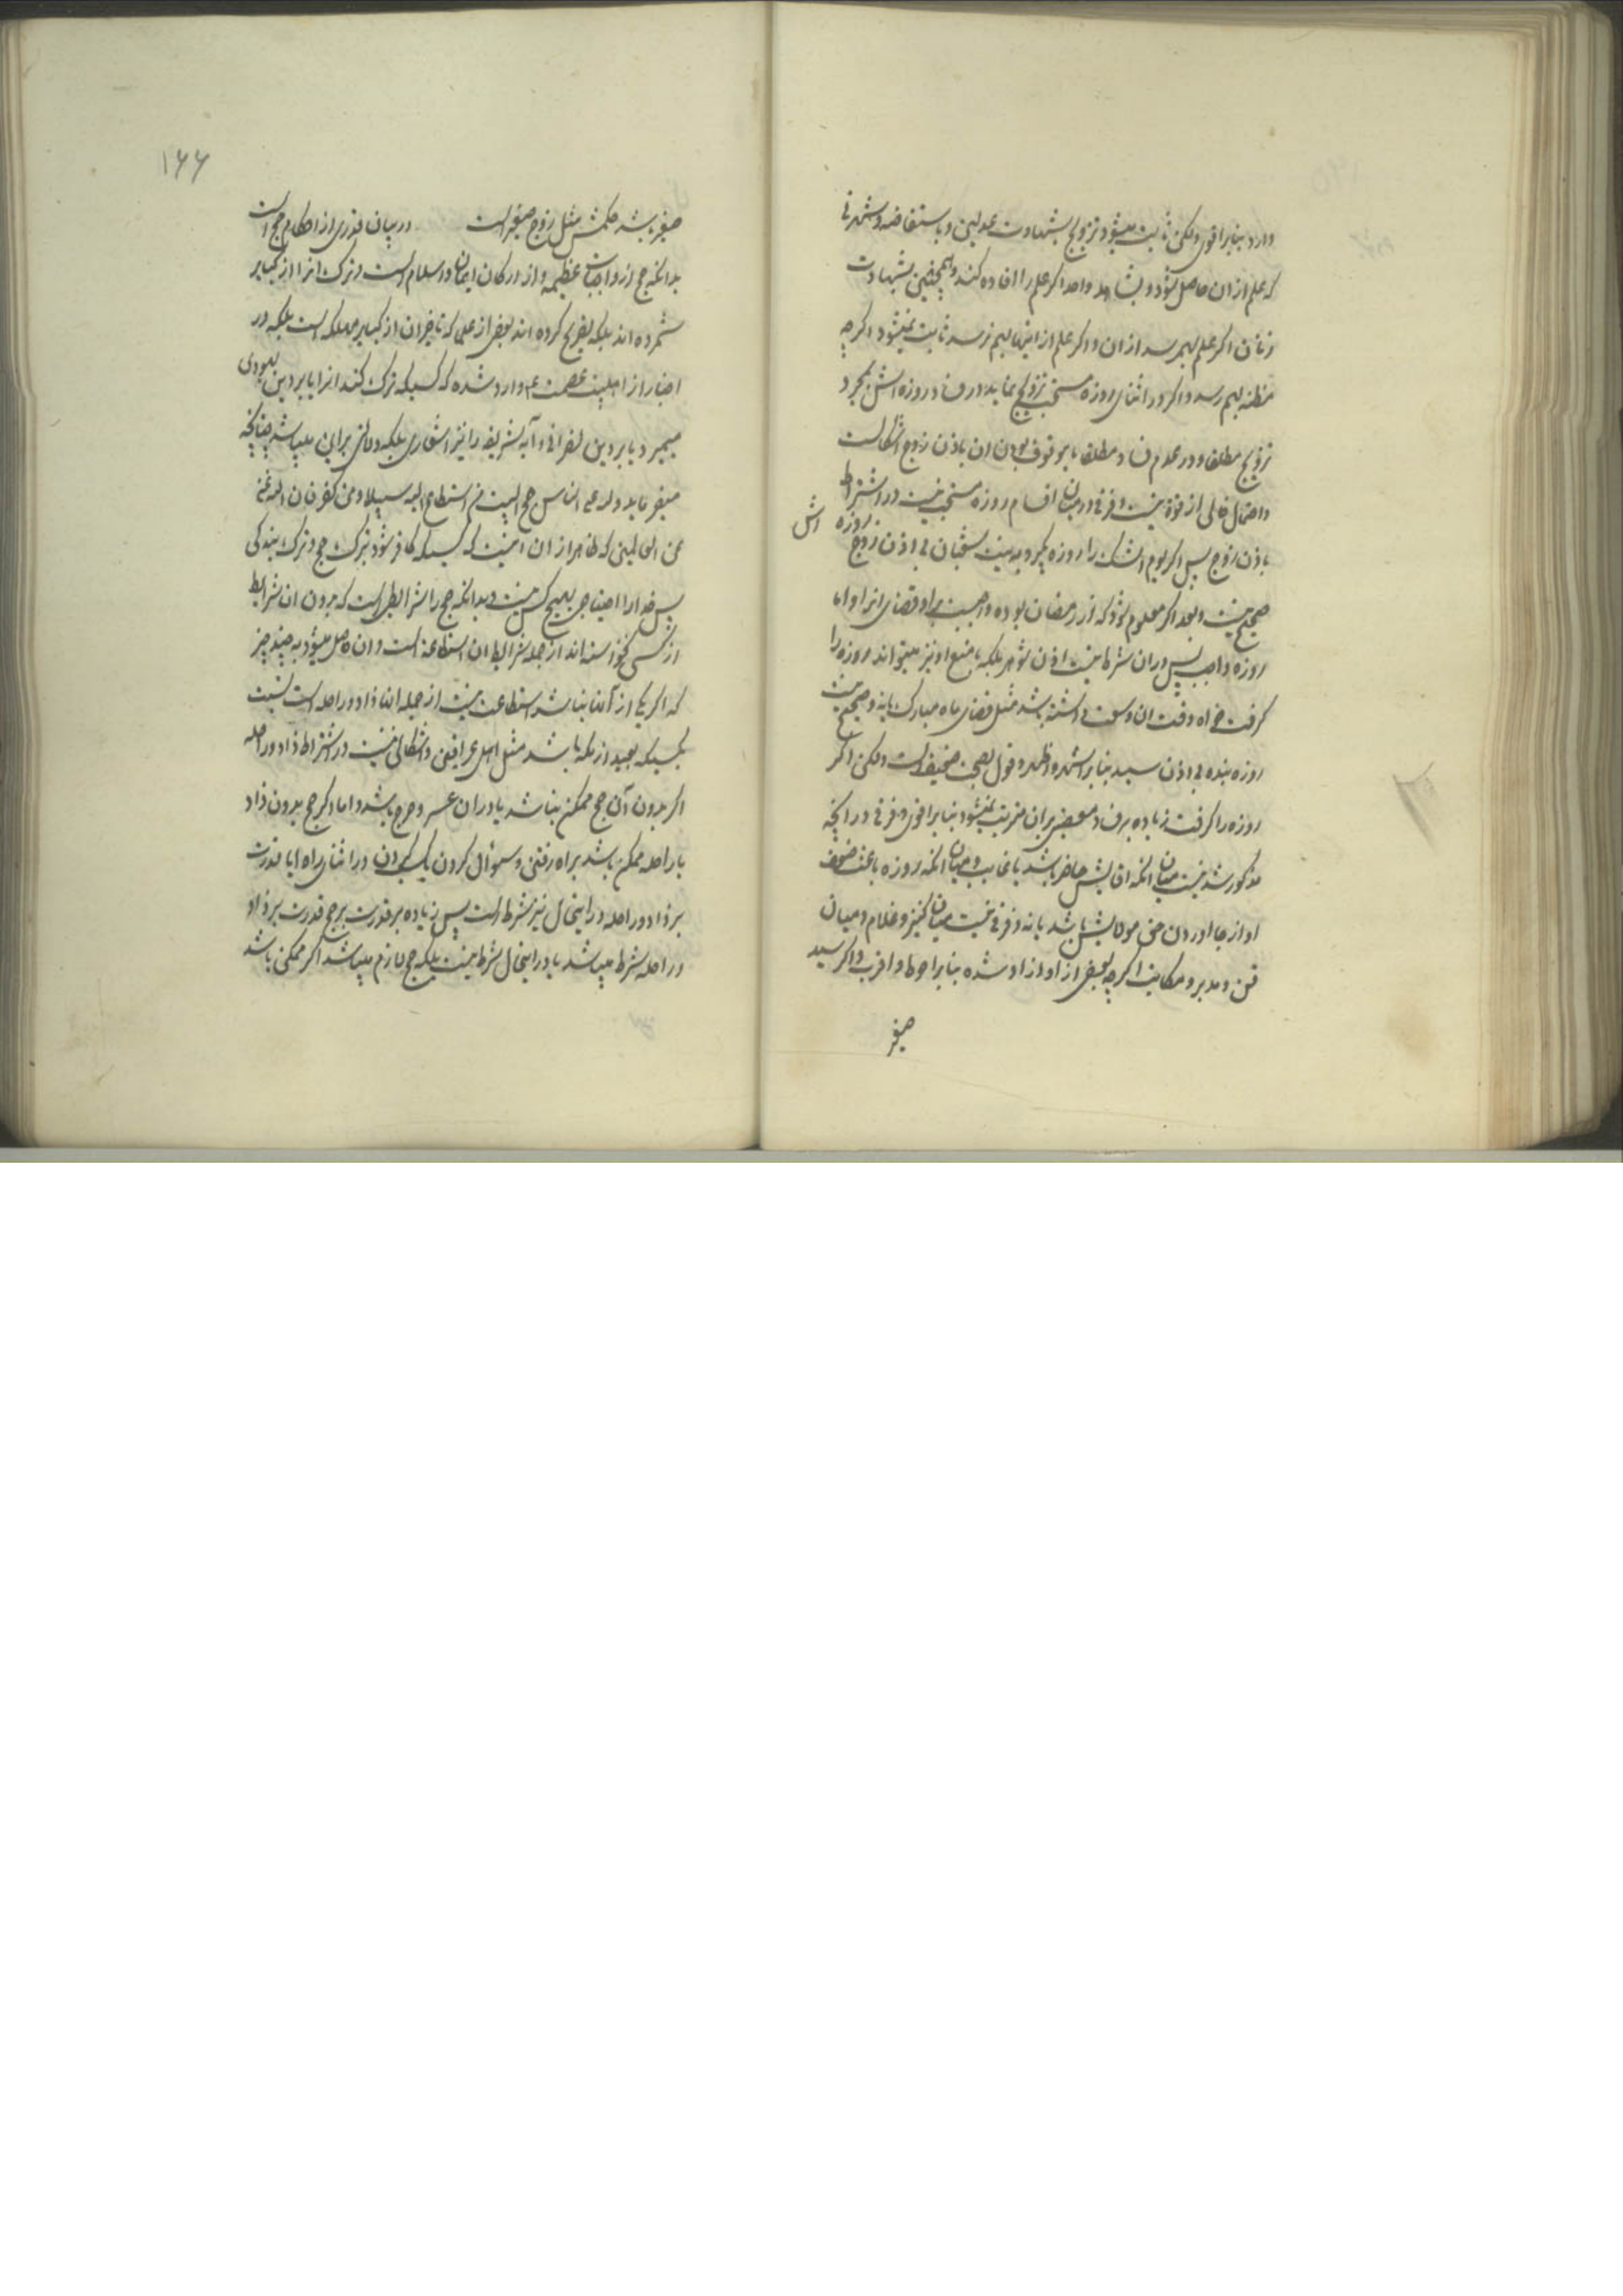 دارد بنابر اقوی ولکن ثابت میشود تزویج بشهادت عدلین و باستفاضه و شهرتی
که علم از ان حاصل شود و بشاهد واحد اکر علم را افاده کند و همچنین بشهادت
زنان اکر علم بهم رسد از ان و اکر علم از اینها بهم نرسد ثابت نمیشود اکرچه
مظنه بهم رسد و اکر در اثنای روزه مستحب تزویج نماید در فساد روزه اش بمجرد
تزویج مطلقا و در عدم فساد مطلقا یا موقوف بودن ان باذن زوج اشکالست
و احتمال خالی از قوة نیست و فرقی در میان اقسام روزه مستحب نیست در اشتراط
باذن زوج پس اکر یوم الشک را روزه بکیرد به نیت شعبان بی اذن زوج روزه اش
صحیح نیست و بعد اکر معلوم شود که از رمضان بوده واجبست بر او قضای انرا و اما
روزه واجب پس در ان شرط نیست اذن شوهر بلکه با منع او نیز میتواند روزه را
کرفت خواه وقت ان وسعت داشته باشد مثل قضای ماه مبارک یا نه و صحیح نیست
روزه بنده بی اذن سید بنابر اشهر و اظهر و قول بصحت ضعیف است ولکن اکر
روزه را کرفت زیاده بر فساد معصیتی بران مترتب نمیشود بنابر اقوی و فرقی در انچه
مذکور شد نیست میان انکه اقایش حاضر باشد یا غایب و میان انکه روزه باعث ضعف
او از بجا اوردن حق مولایش باشد یا نه و فرقی نیست میان کنیز و غلام و میان
قن و مدبر و مکاتب اکرچه بعضی از او ازاد شده بنابر احوط و اقرب و اکر سید
صغیر
۱۶۶
صغیر باشد حکمش مثل زوج صغیر است در بیان قدری از احکام حج است
بدانکه حج از واجبات عظیمه و از ارکان ایمان و اسلام است و ترک انرا از کبایر
شمرده اند بلکه تصریح کرده اند بعضی از علما که تاخیر ان از کبایر مهلکه است بلکه در
اخبار از اهلبیت عصمت ع وارد شده که کسیکه ترک کند انرا یا بر دین یهودی
میمیرد یا بر دین نصرانی و آیه شریفه را نیز اشعاری بلکه دلالتی براین میباشد چنانچه
میفرماید ولله علی الناس حج البیت من استطاع الیه سبیلا ومن کفر فان الله غنی
عن العالمین که ظاهر از ان اینست که کسیکه کافر شود بترک حج و ترک بندکی
پس خدا را احتیاجی بهیچ کس نیست و بدانکه حج را شرایطی است که بدون ان شرایط
از کسی نخواسته اند از جمله شرایط ان استطاعت است و ان حاصل میشود به چند چیز
که اکر یکی از آنها نباشد استطاعت نیست از جمله انها زاد و راحله است نسبت
بکسیکه بعید از مکه باشد مثل اهل عراقین و اشکالی نیست در اشتراط زاد و راحله
اکر بدون آن حج ممکن نباشد یا در ان عسر و حرج باشد و اما اکر حج بدون زاد
یا راحله ممکن باشد براه رفتن و سئوال کردن یا کسب کردن در اثنای راه ایا قدرت
بر زاد و راحله در اینحال نیز شرط است پس زیاده بر قدرت بر حج قدرت بر زاد
و راحله شرط میباشد یا در اینحال شرط نیست بلکه حج لازم میباشد اکر ممکن باشد